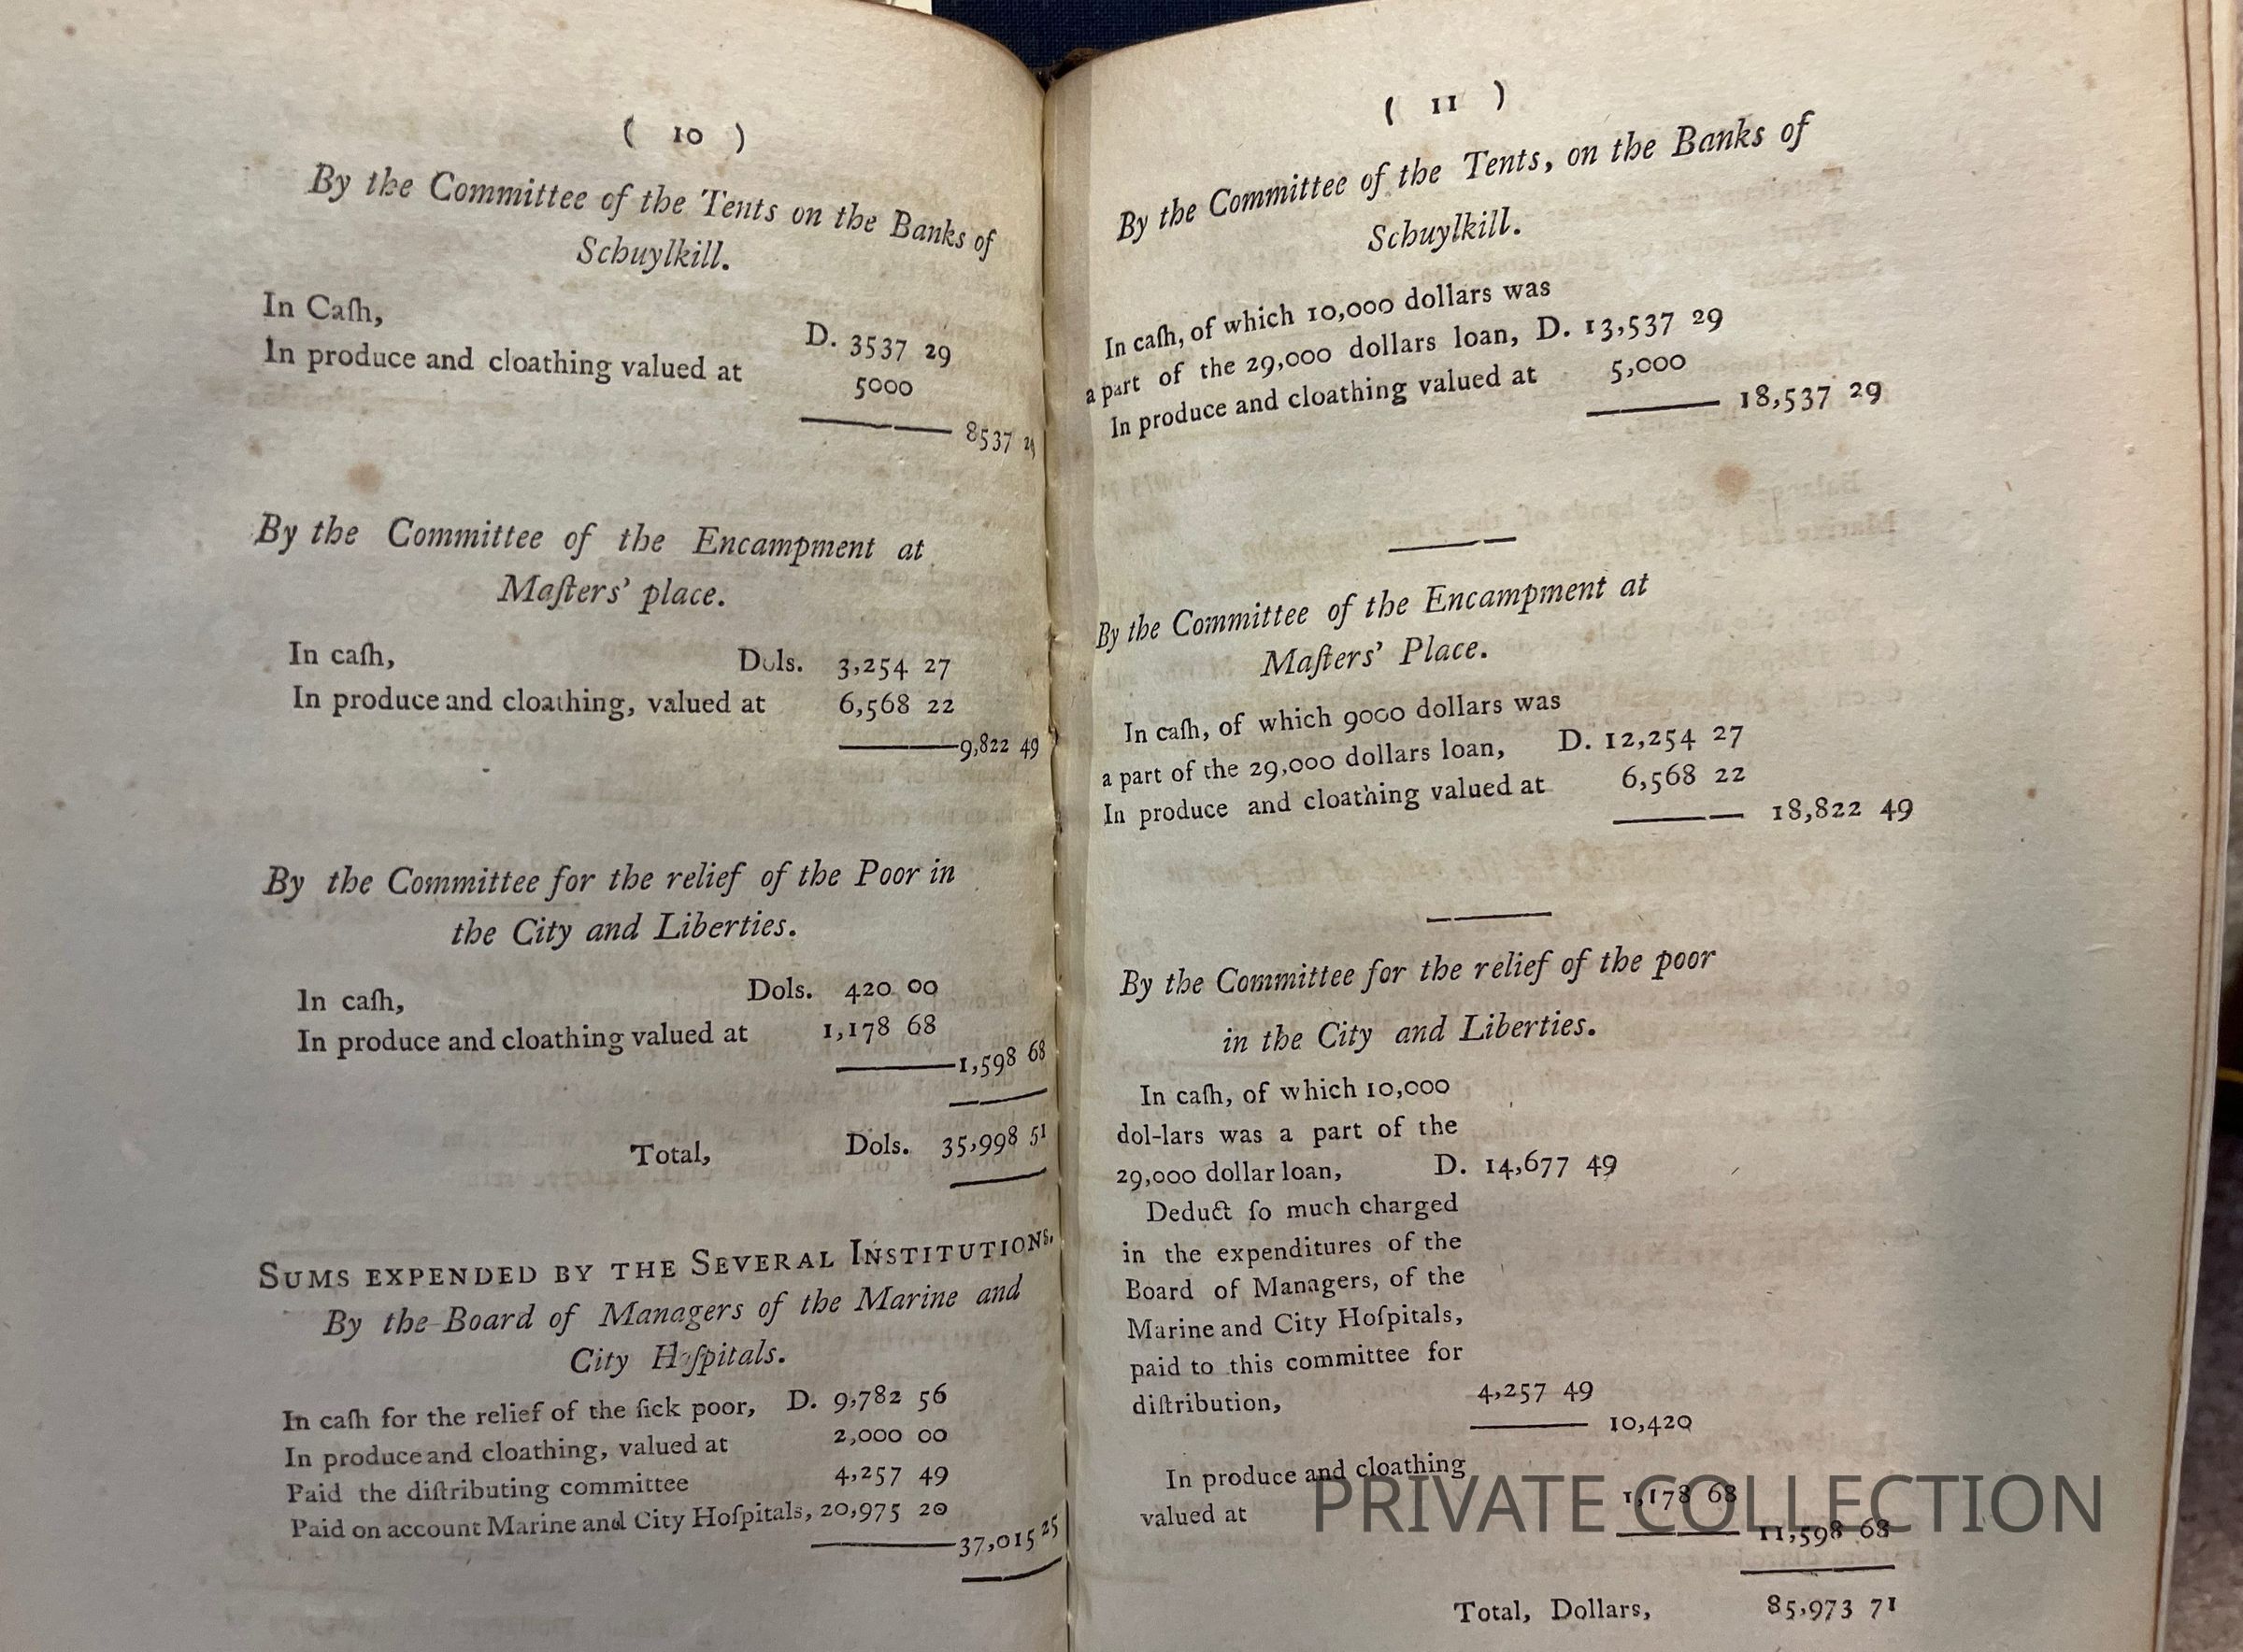 ( 10 )
By the Committee of the Tents on the Banks of
Schuylkill.
In Caſh, D. 3537 29
In produce and cloathing valued at 5000
8537 29
By the Committee of the Encampment at
Maſters' place.
In caſh, Dols. 3,254 27
In produce and cloathing, valued at 6,568 22
9,822 49
By the Committee for the relief of the Poor in
the City and Liberties.
In caſh, Dols. 420 00
In produce and cloathing valued at 1,178 68
1,598 68
Total, Dols. 35,998 51
SUMS EXPENDED BY THE SEVERAL INSTITUTIONS.
By the Board of Managers of the Marine and
City Hoſpitals.
In caſh for the relief of the ſick poor, D. 9,782 56
In produce and cloathing, valued at 2,000 00
Paid the diſtributing committee 4,257 49
Paid on account Marine and City Hoſpitals, 20,975 20
37,015 25
( 11 )
By the Committee of the Tents, on the Banks of
Schuylkill.
In caſh, of which 10,000 dollars was
a part of the 29,000 dollars loan, D. 13,537 29
In produce and cloathing valued at 5,000
18,537 29
By the Committee of the Encampment at
Maſters' Place.
In caſh, of which 9000 dollars was
a part of the 29,000 dollars loan, D. 12,254 27
In produce and cloathing valued at 6,568 22
18,822 49
By the Committee for the relief of the poor
in the City and Liberties.
In caſh, of which 10,000
dol-lars was a part of the
29,000 dollar loan, D. 14,677 49
Deduct ſo much charged
in the expenditures of the
Board of Managers, of the
Marine and City Hoſpitals,
paid to this committee for
diſtribution, 4,257 49
10,420
In produce and cloathing
valued at 1,178 68
11,598 68
Total, Dollars, 85,973 71
PRIVATE COLLECTION